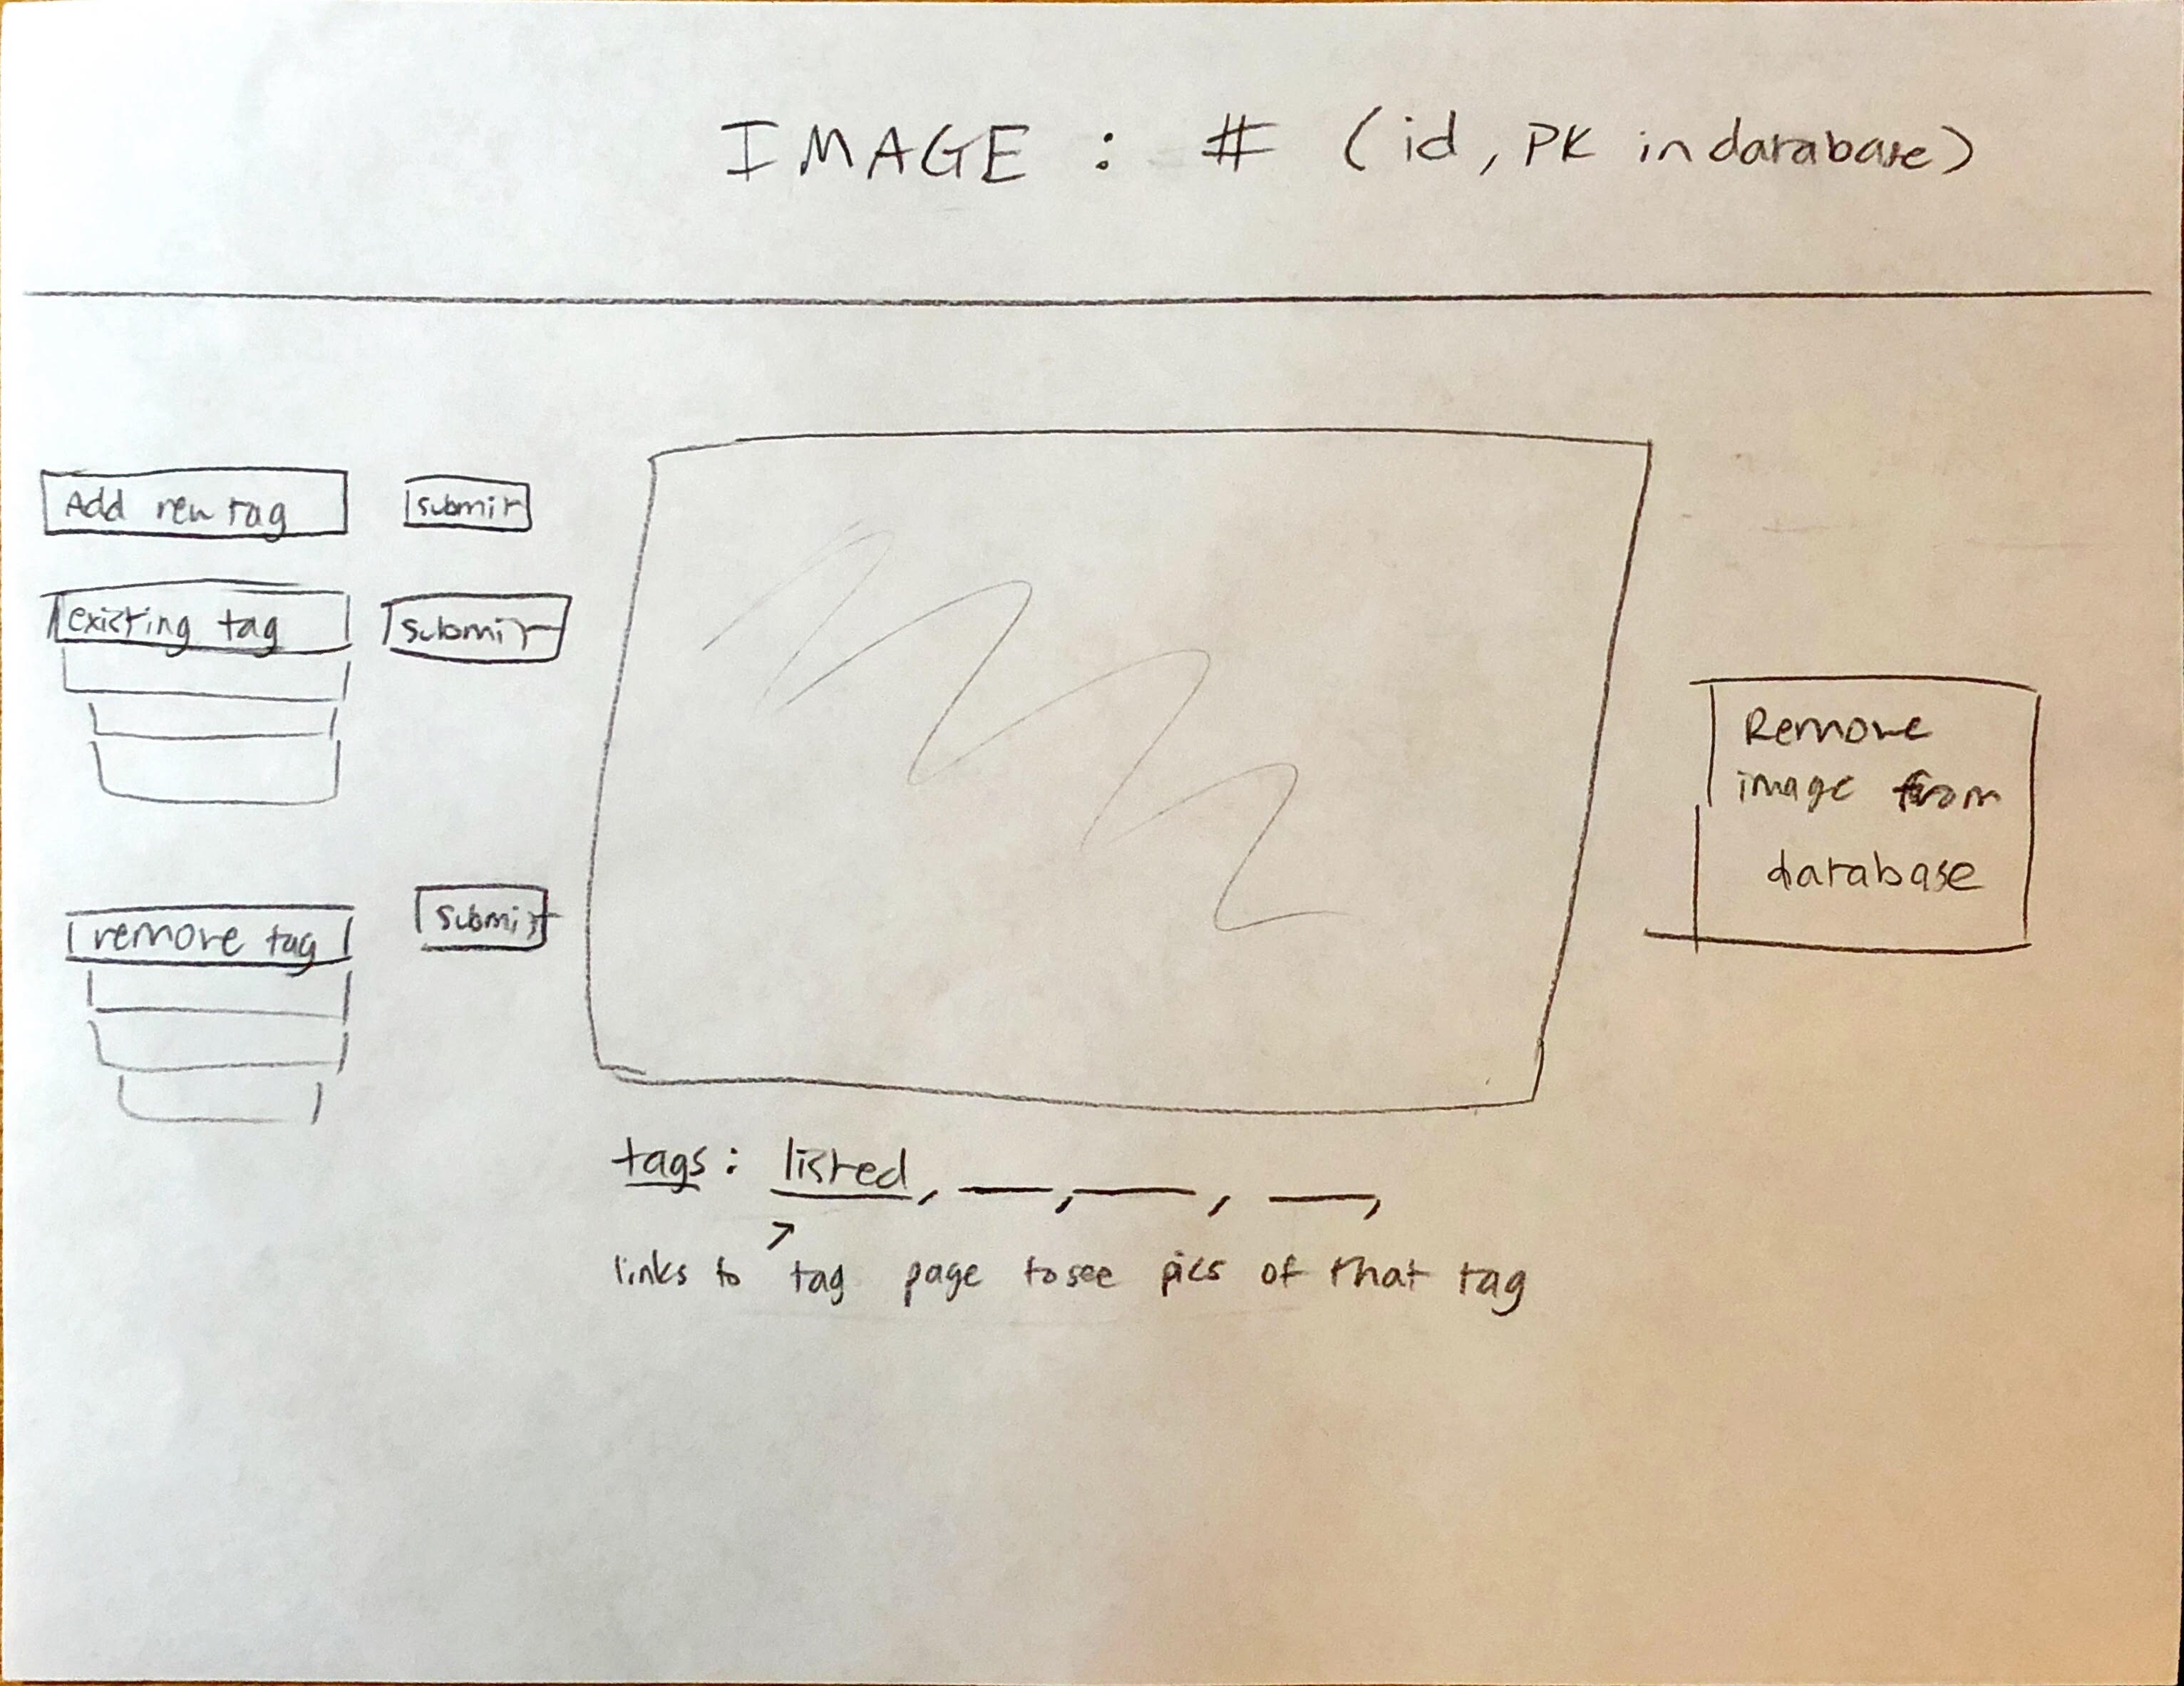 IMAGE : # (id, PK in database)
Add new tag
submit
existing tag
submit
remove tag
submit
Remove
image from
database
tags: listed, __, __, __,
links to tag page to see pics of that tag